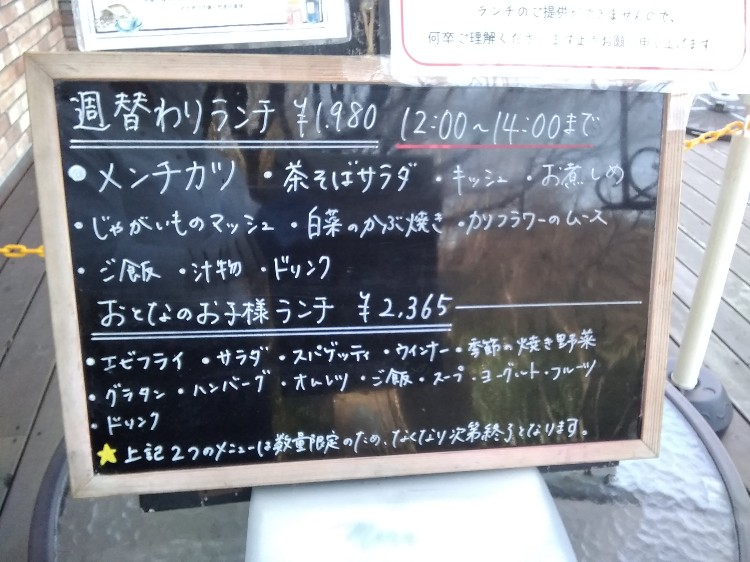 ランチのご提供ができませんので、
何卒ご理解くださいますようお願い申し上げます
週替わりランチ ¥1,980 12:00〜14:00まで
・メンチカツ ・茶そばサラダ ・キッシュ ・お煮しめ
・じゃがいものマッシュ ・白菜のかぶ焼き ・カリフラワーのムース
・ご飯 ・汁物 ・ドリンク
おとなのお子様ランチ ¥2,365
・エビフライ ・サラダ ・スパゲッティ ・ウインナー ・季節の焼き野菜
・グラタン ・ハンバーグ ・オムレツ ・ご飯 ・スープ ・ヨーグルト・フルーツ
・ドリンク
★上記2つのメニューは数量限定のため、なくなり次第終了となります。